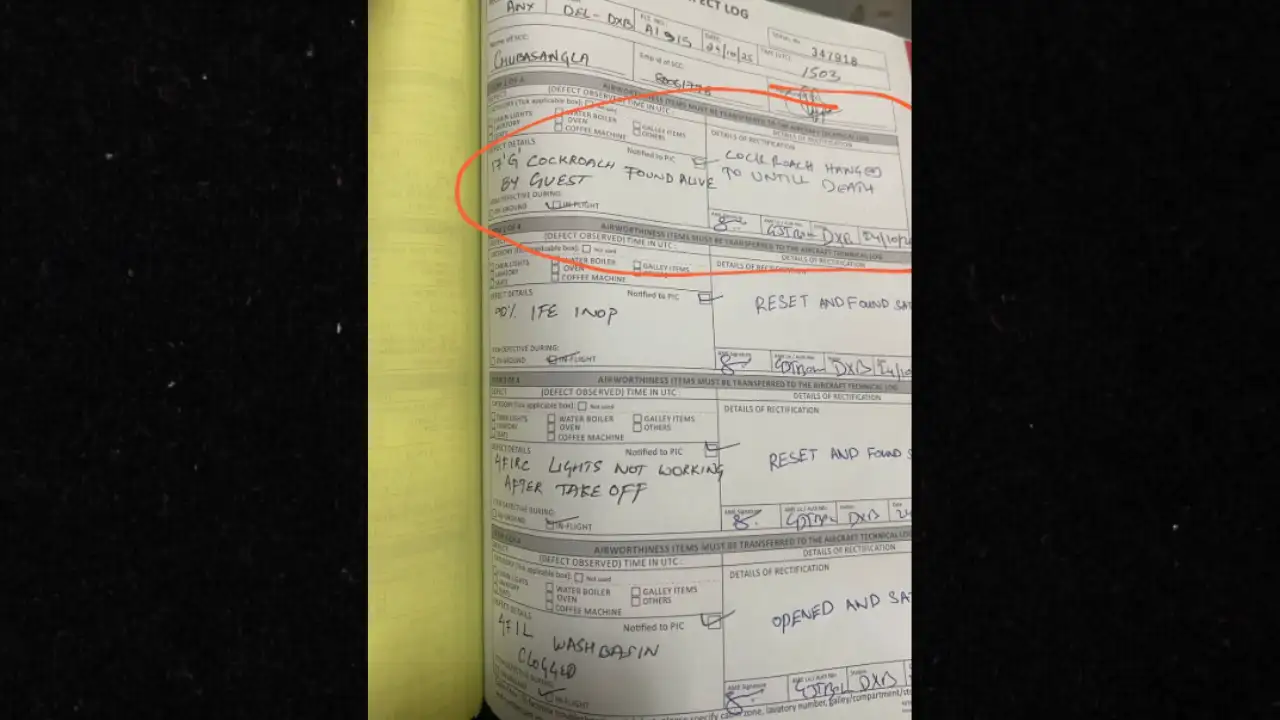 ECT LOG
ANX
DEL-DXB
AI 915
24/10/25
347918
1503
Name of SCC:
CHUBASANGLA
Emp Id of SCC:
AIRWORTHINESS ITEMS MUST BE TRANSFERRED TO THE AIRCRAFT TECHNICAL LOG
(DEFECT OBSERVED) TIME IN UTC:
DETAILS OF RECTIFICATION
(Tick applicable box):
CABIN LIGHTS
WATER BOILER
GALLEY ITEMS
LAVATORY
OVEN
OTHERS
SEATS
COFFEE MACHINE
DETAILS OF RECTIFICATION
DEFECT DETAILS
Notified to PIC
17'G' COCKROACH FOUND ALIVE
BY GUEST
COCKROACH HANGED
TO UNTILL DEATH
ITEM DEFECTIVE DURING:
ON GROUND
IN-FLIGHT
DXB
24/10/2
AIRWORTHINESS ITEMS MUST BE TRANSFERRED TO THE AIRCRAFT TECHNICAL LOG
(DEFECT OBSERVED) TIME IN UTC:
DETAILS OF RECTIFICATION
Not used
WATER BOILER
GALLEY ITEMS
OVEN
COFFEE MACHINE
DETAILS OF RECTIFICATION
DEFECT DETAILS
Notified to PIC
IFE INOP
RESET AND FOUND SAT
ITEM DEFECTIVE DURING:
ON GROUND
IN-FLIGHT
DXB
24/10
ITEM 3 OF 4
AIRWORTHINESS ITEMS MUST BE TRANSFERRED TO THE AIRCRAFT TECHNICAL LOG
DEFECT
(DEFECT OBSERVED) TIME IN UTC
DETAILS OF RECTIFICATION
CATEGORY (Tick applicable box):
Not used
CABIN LIGHTS
WATER BOILER
GALLEY ITEMS
LAVATORY
OVEN
OTHERS
SEATS
COFFEE MACHINE
DETAILS OF RECTIFICATION
DEFECT DETAILS
Notified to PIC
4F1RC LIGHTS NOT WORKING
AFTER TAKE OFF
RESET AND FOUND S
ITEM DEFECTIVE DURING:
ON GROUND
IN-FLIGHT
AME Signature
DXB
Date
24
AIRWORTHINESS ITEMS MUST BE TRANSFERRED TO THE AIRCRAFT TECHNICAL LOG
DEFECT
(DEFECT OBSERVED) TIME IN UTC:
DETAILS OF RECTIFICATION
CATEGORY (Tick applicable box):
Not used
CABIN LIGHTS
WATER BOILER
GALLEY ITEMS
LAVATORY
OVEN
OTHERS
SEATS
COFFEE MACHINE
DETAILS OF RECTIFICATION
DEFECT DETAILS
Notified to PIC
4F1L WASHBASIN
CLOGGED
OPENED AND SA
IN-FLIGHT
AME Signature
DXB
specify cabin zone, lavatory number, galley/compartment/sto